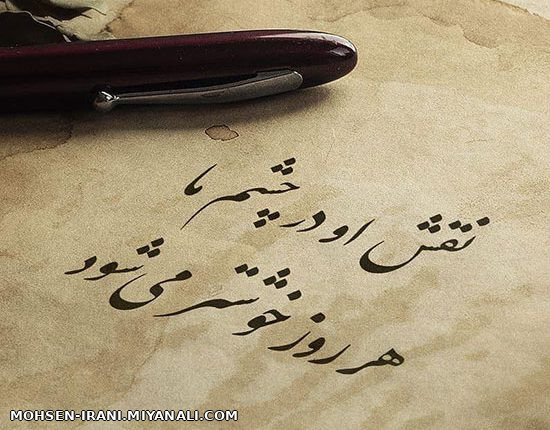 نقش او در چشم ما
هر روز خوشتر می شود
MOHSEN-IRANI.MIYANALI.COM